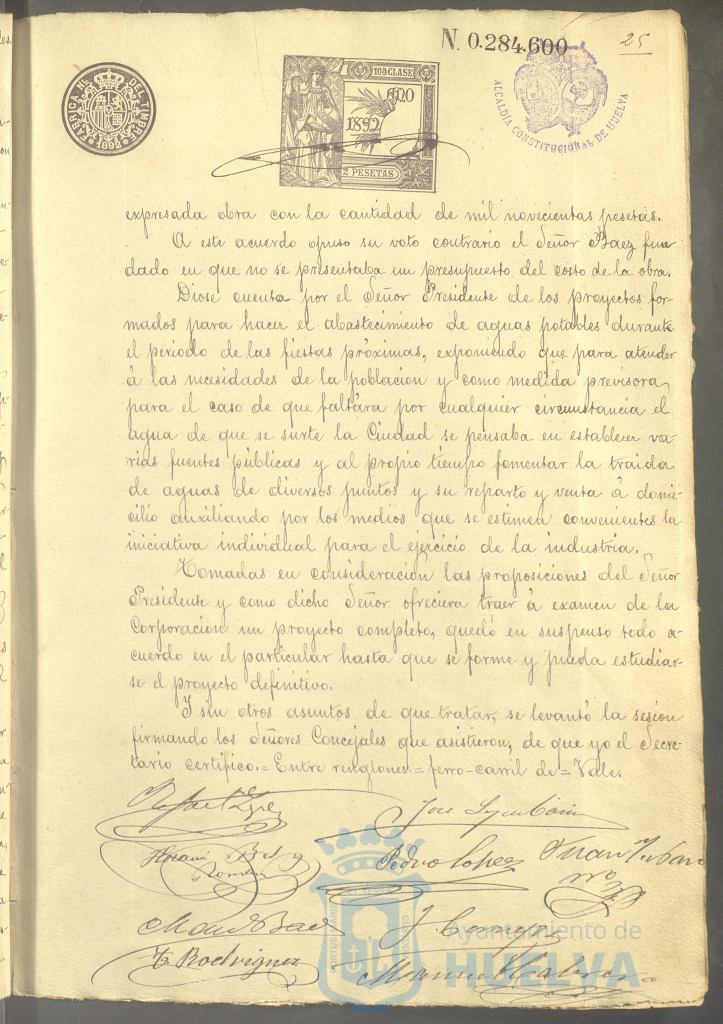 N. 0.284.600
25
FABRICA NL. DEL TIMBRE
1892
10ª CLASE
AÑO
1892
2 PESETAS
ALCALDIA CONSTITUCIONAL DE HUELVA
expresada obra con la cantidad de mil novecientas pesetas.
A este acuerdo opuso su voto contrario el Señor Baez fun
dado en que no se presentaba un presupuesto del costo de la obra.
Diose cuenta por el Señor Presidente de los proyectos for-
mados para hacer el abastecimiento de aguas potables durante
el periodo de las fiestas próximas, exponiendo que para atender
á las necesidades de la poblacion y como medida previsora,
para el caso de que faltára por cualquier circunstancia el
agua de que se surte la Ciudad se pensaba en establecer va-
rias fuentes públicas y al propio tiempo fomentar la traida
de aguas de diversos puntos y su reparto y venta á domi-
cilio auxiliando por los medios que se estimen convenientes la
iniciativa individual para el ejercicio de la industria.
Tomadas en consideracion las proposiciones del Señor
Presidente y como dicho Señor ofreciera traer á examen de la
Corporacion un proyecto completo, quedó en suspenso todo a-
cuerdo en el particular hasta que se forme y pueda estudiar-
se el proyecto definitivo.
Y sin otros asuntos de que tratar, se levantó la sesion
firmando los Señores Concejales que asistieron, de que yo el Secre-
tario certifico.= Entre renglones = ferro-carril de = Vale.
Jose
Pedro Lopez
Juan
Baez
Rodriguez
Manuel
Ayuntamiento de
HUELVA